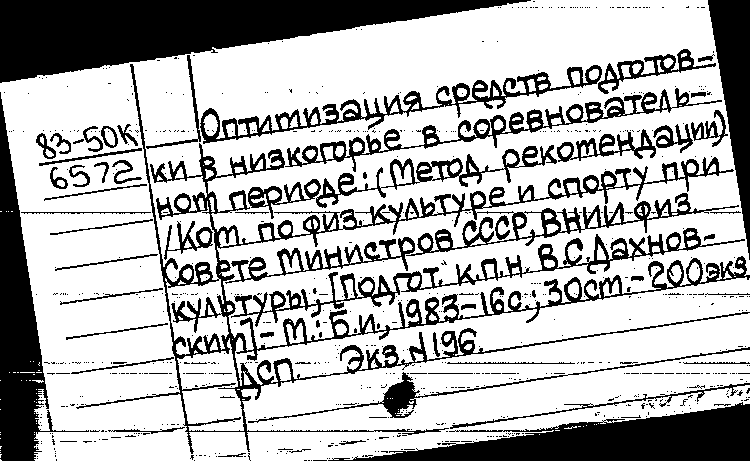 83-50К
6572
Оптимизация средств подготов-
ки в низкогорье в соревнователь-
ном периоде: (Метод. рекомендации)
/Ком. по физ. культуре и спорту при
Совете Министров СССР, ВНИИ физ.
культуры; [Подгот. к.п.н. В.С. Дахнов-
ским].- М.: Б.и., 1983-16с.; 30см.- 200экз.
ДСП. Экз. N196.